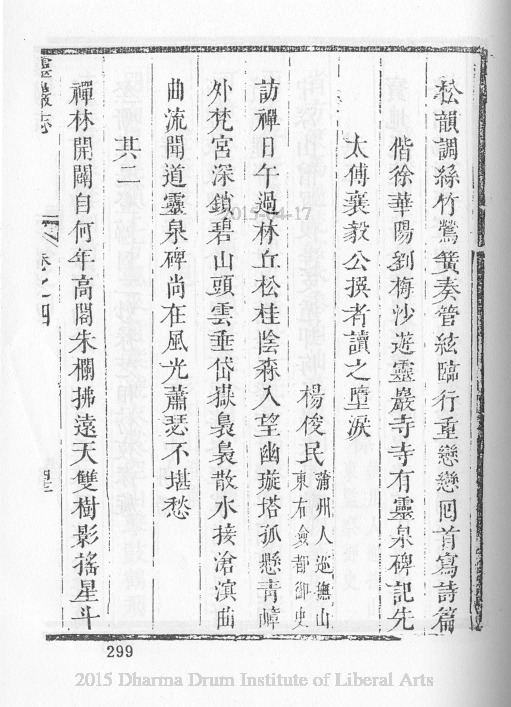 松韻調絲竹鶯簧奏管絃臨行重戀戀囘首寫詩篇
偕徐華陽劉梅沙遊靈巖寺寺有靈泉碑記先
太傅襄毅公撰者讀之墮淚
楊俊民 蒲州人巡撫山東右僉都御史
訪禪日午過林丘松桂陰森入望幽璇塔孤懸青嶂
外梵宮深鎖碧山頭雲垂岱嶽裊裊散水接滄溟曲
曲流聞道靈泉碑尚在風光蕭瑟不堪愁
其二
禪林開闢自何年高閣朱欄拂遠天雙樹影搖星斗
靈巖志
卷之四
2015-04-17
299
2015 Dharma Drum Institute of Liberal Arts